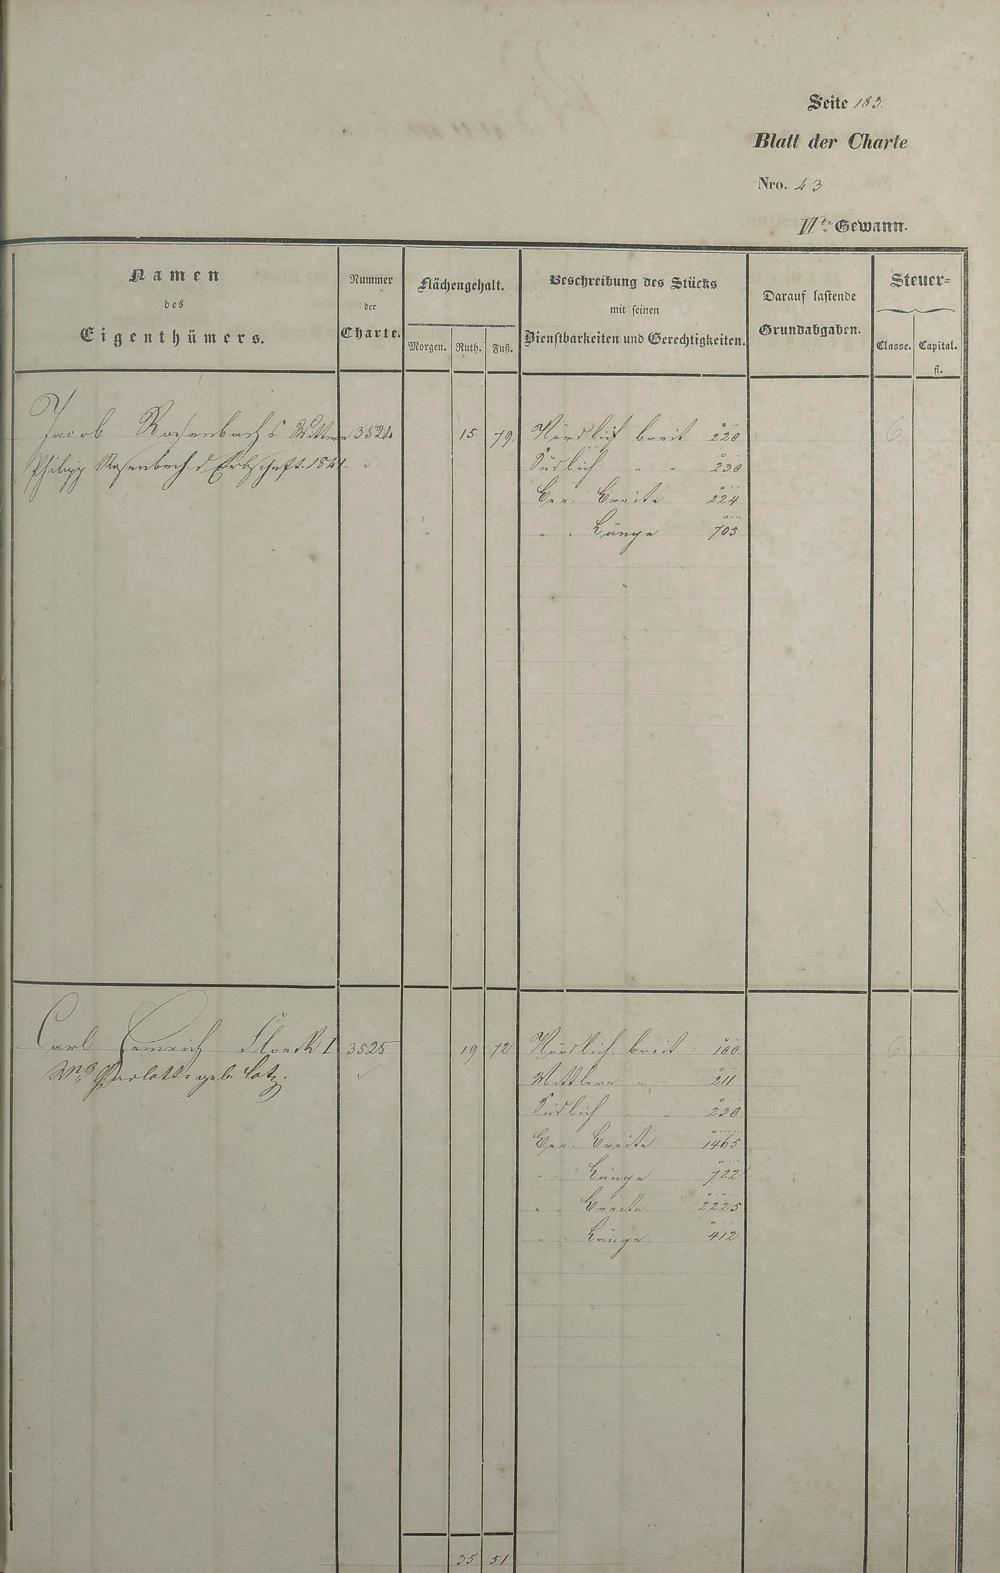 Seite 183.
Blatt der Charte
Nro. 43
VI te Gewann.
Namen
des
Eigenthümers.
Nummer
der
Charte.
Flächengehalt.
Morgen. Ruth. Fuß.
Beschreibung des Stücks
mit seinen
Dienstbarkeiten und Gerechtigkeiten.
Darauf lastende
Grundabgaben.
Steuer=
Classe. Capital.
fl.
Jacob Rosenbachs Wittwe 3524 15 79 Nördlich breit 220 6
Philipp Rosenbach d. Erbschaft. 1841. Südlich " " 230
Ber. Breite 224
" " Länge 705
Carl Heinrich Floeck I 3525 19 72 Nördlich breit 100 6
Charlotte geb. Lotz. Mittlere " " 211
Südlich " " 230
Ber. Breite 1465
" " Länge 722
" " Breite 2225
" " Länge 412
35 51